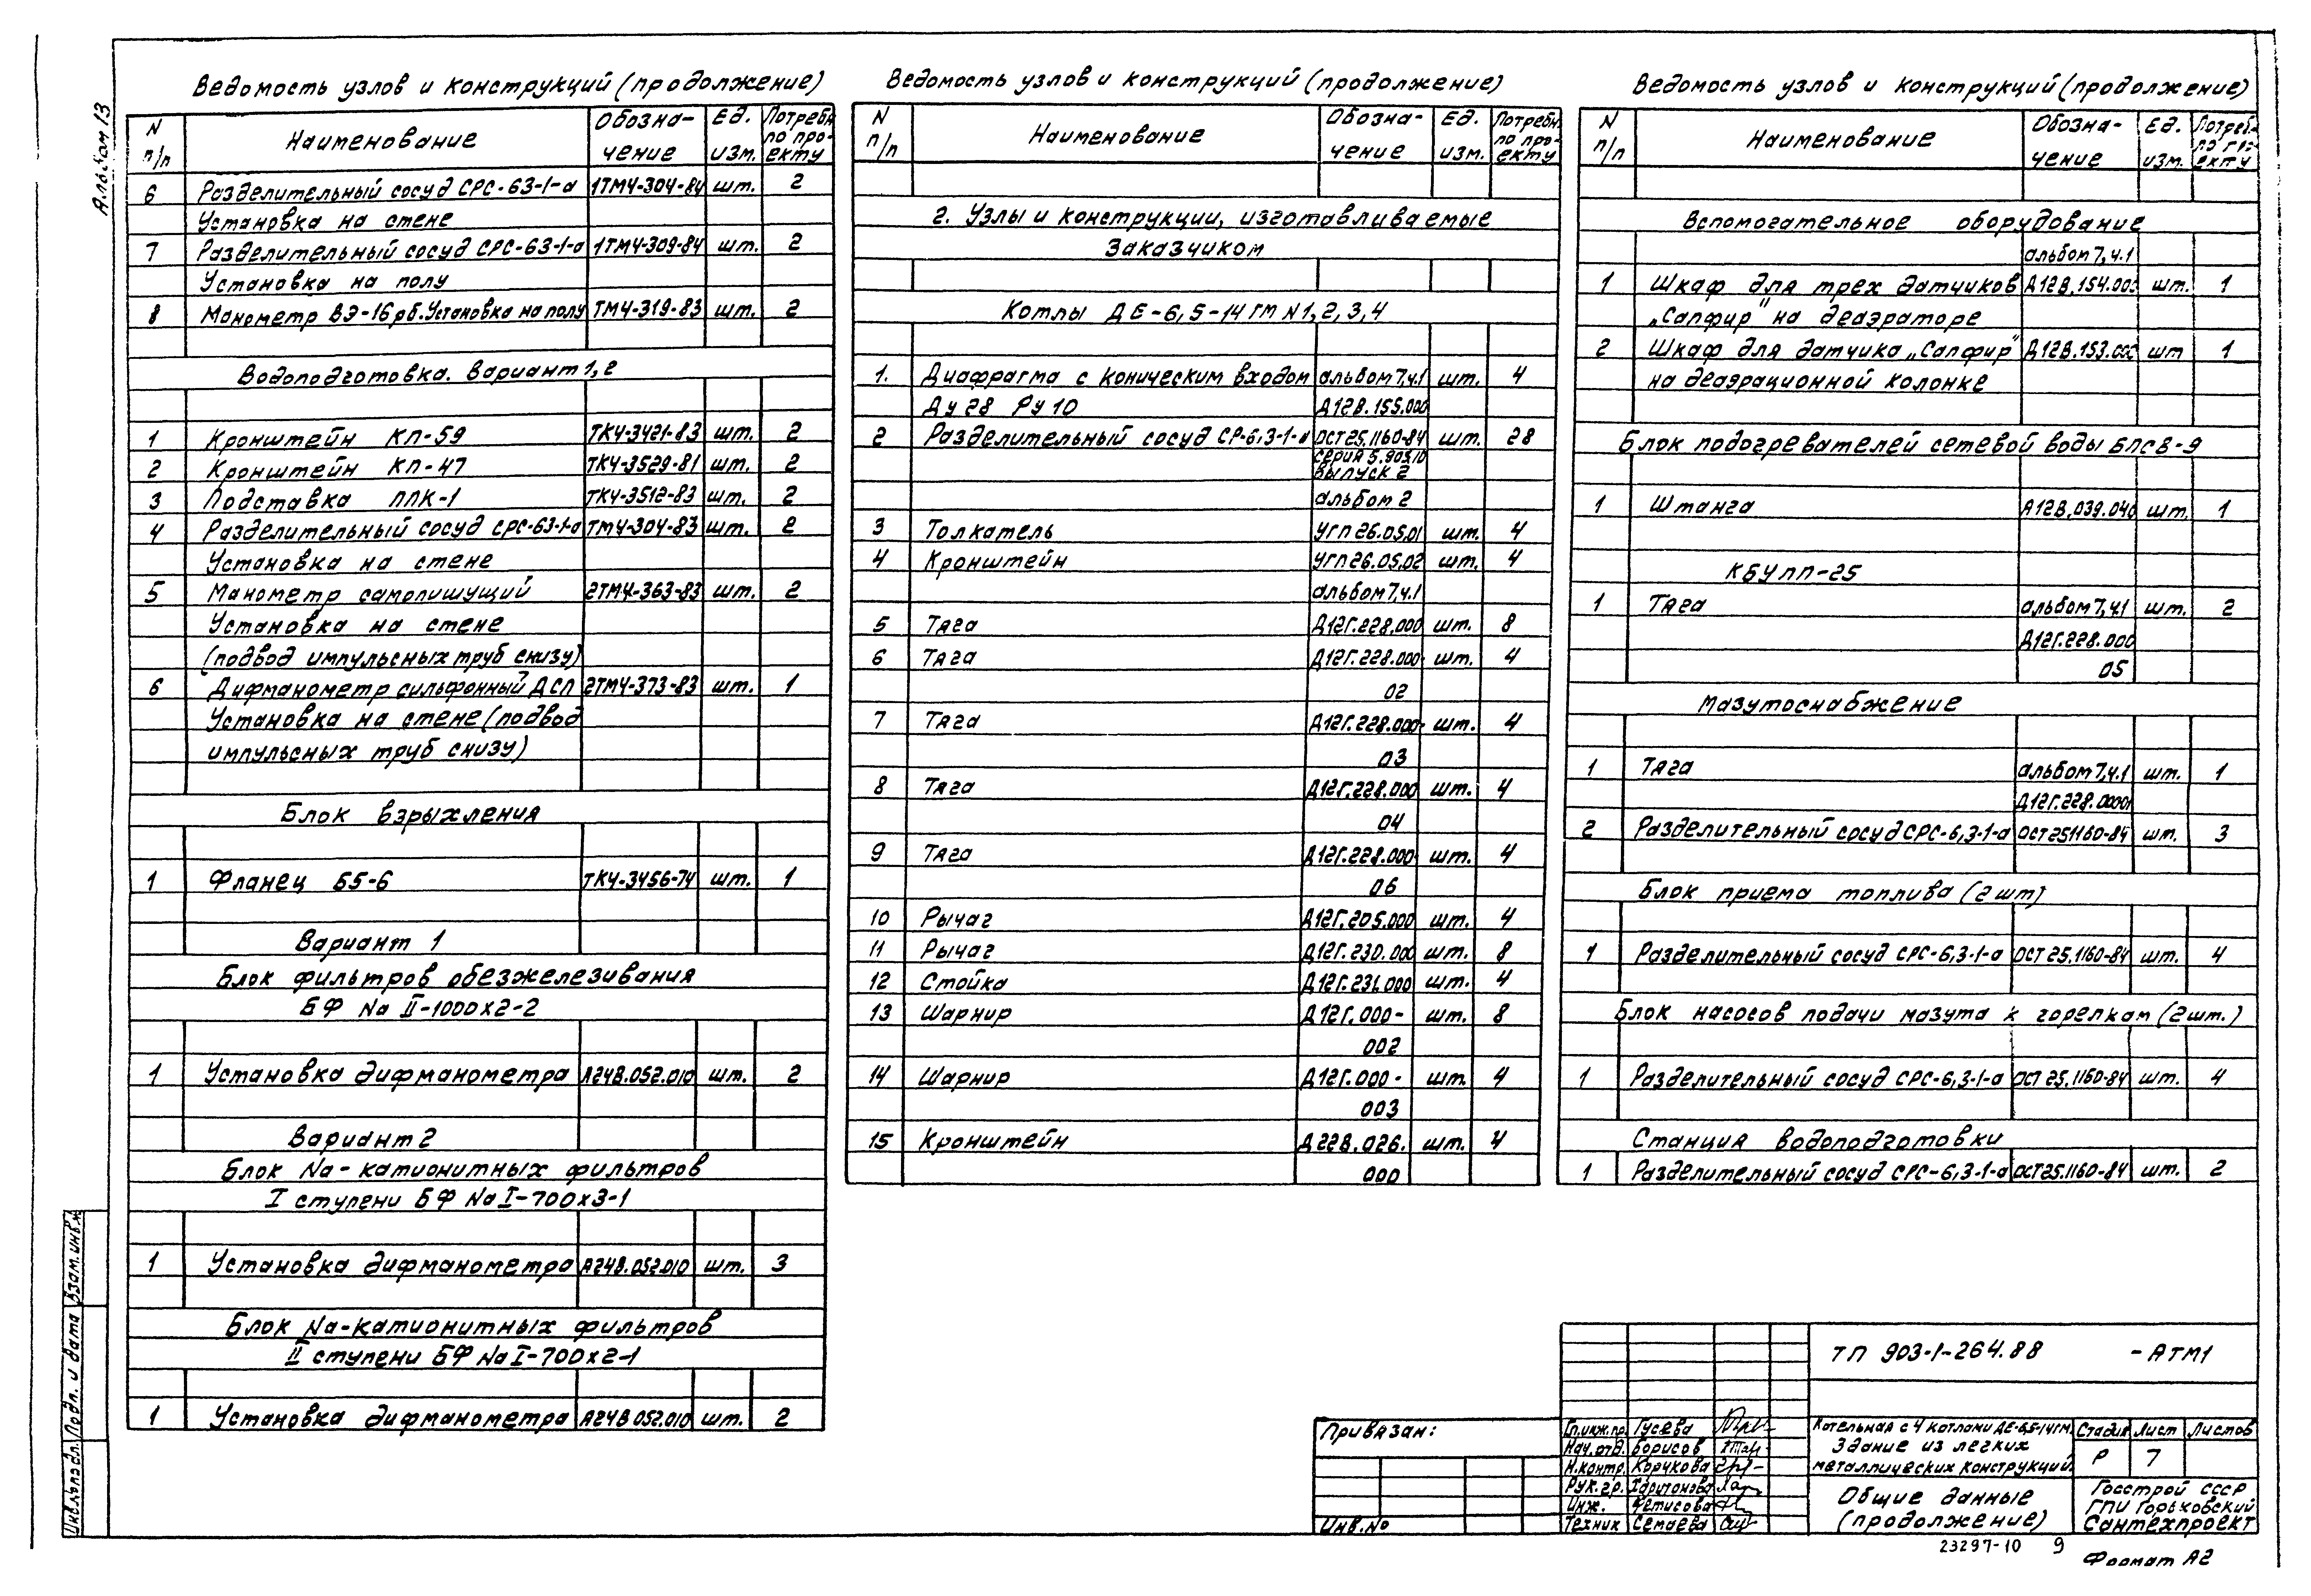 Альбом 13
Ведомость узлов и конструкций (продолжение)
N п/п Наименование Обозна- чение Ед. изм. Потребн. по про- екту
6 Разделительный сосуд СРС-63-1-а 1ТМ4-304-84 шт. 2
Установка на стене
7 Разделительный сосуд СРС-63-1-а 1ТМ4-309-84 шт. 2
Установка на полу
8 Манометр ВЭ-16рб. Установка на полу ТМ4-319-83 шт. 2
Водоподготовка. Вариант 1,2
1 Кронштейн КП-59 ТК4-3421-83 шт. 2
2 Кронштейн КП-47 ТК4-3529-81 шт. 2
3 Подставка ППК-1 ТК4-3512-83 шт. 2
4 Разделительный сосуд СРС-63-1-а ТМ4-304-83 шт. 2
Установка на стене
5 Манометр самопишущий 2ТМ4-363-83 шт. 2
Установка на стене
(подвод импульсных труб снизу)
6 Дифманометр сильфонный ДСП 2ТМ4-373-83 шт. 1
Установка на стене (подвод
импульсных труб снизу)
Блок взрыхления
1 Фланец Б5-6 ТК4-3456-74 шт. 1
Вариант 1
Блок фильтров обезжелезивания
БФ Na II-1000х2-2
1 Установка дифманометра А24В.052.010 шт. 2
Вариант 2
Блок Na-катионитных фильтров
I ступени БФ Na I-700х3-1
1 Установка дифманометра А24В.052.010 шт. 3
Блок Na-катионитных фильтров
II ступени БФ Na I-700х2-1
1 Установка дифманометра А24В.052.010 шт. 2
Ведомость узлов и конструкций (продолжение)
N п/п Наименование Обозна- чение Ед. изм. Потребн. по про- екту
2. Узлы и конструкции, изготавливаемые
Заказчиком
Котлы ДЕ-6,5-14ГМ N1,2,3,4
1. Диафрагма с коническим входом альбом 7,ч.1 шт. 4
Ду 28 Ру 10 Д12В.155.000
2 Разделительный сосуд СР-6,3-1-а ОСТ 25.1160-84 шт. 28
серия 5.903.10
выпуск 2
альбом 2
3 Толкатель УГП 26.05.01 шт. 4
4 Кронштейн УГП 26.05.02 шт. 4
альбом 7,ч.1
5 Тяга Д12Г.228.000 шт. 8
6 Тяга Д12Г.228.000- шт. 4
02
7 Тяга Д12Г.228.000- шт. 4
03
8 Тяга Д12Г.228.000 шт. 4
04
9 Тяга Д12Г.228.000- шт. 4
06
10 Рычаг Д12Г.205.000 шт. 4
11 Рычаг Д12Г.230.000 шт. 8
12 Стойка Д12Г.231.000 шт. 4
13 Шарнир Д12Г.000- шт. 8
002
14 Шарнир Д12Г.000- шт. 4
003
15 Кронштейн Д22В.026. шт. 4
000
Ведомость узлов и конструкций (продолжение)
N п/п Наименование Обозна- чение Ед. изм. Потреб. по про- екту
Вспомогательное оборудование
альбом 7,ч.1
1 Шкаф для трех датчиков Д12В.154.000 шт. 1
„Сапфир" на деаэраторе
2 Шкаф для датчика „Сапфир" Д12В.153.000 шт 1
на деаэрационной колонке
Блок подогревателей сетевой воды БПСВ-9
1 Штанга А12В.039.040 шт. 1
КБУПП-25
1 Тяга альбом 7,ч.1 шт. 2
Д12Г.228.000
05
Мазутоснабжение
1 Тяга альбом 7,ч.1 шт. 1
Д12Г.228.00001
2 Разделительный сосуд СРС-6,3-1-а ОСТ 251160-84 шт. 3
Блок приема топлива (2шт)
1 Разделительный сосуд СРС-6,3-1-а ОСТ 25.1160-84 шт. 4
Блок насосов подачи мазута к горелкам (2шт.)
1 Разделительный сосуд СРС-6,3-1-а ОСТ 25.1160-84 шт. 4
Станция водоподготовки
1 Разделительный сосуд СРС-6,3-1-а ОСТ 25.1160-84 шт. 2
Инв.№подл. Подп. и дата Взам.инв.№
Привязан:
Инв.№
ТП 903-1-264.88 -АТМ1
Гл.инж.пр. Гусева
Нач.отд. Борисов
Н.контр. Корчкова
Рук.гр. Харитонова
Инж. Фетисова
Техник Семаева
Котельная с 4 котлами ДЕ-6,5-14ГМ.
Здание из легких
металлических конструкций.
Стадия Лист Листов
Р 7
Общие данные
(продолжение)
Госстрой СССР
ГПИ Горьковский
Сантехпроект
23297-10 9
Формат А2